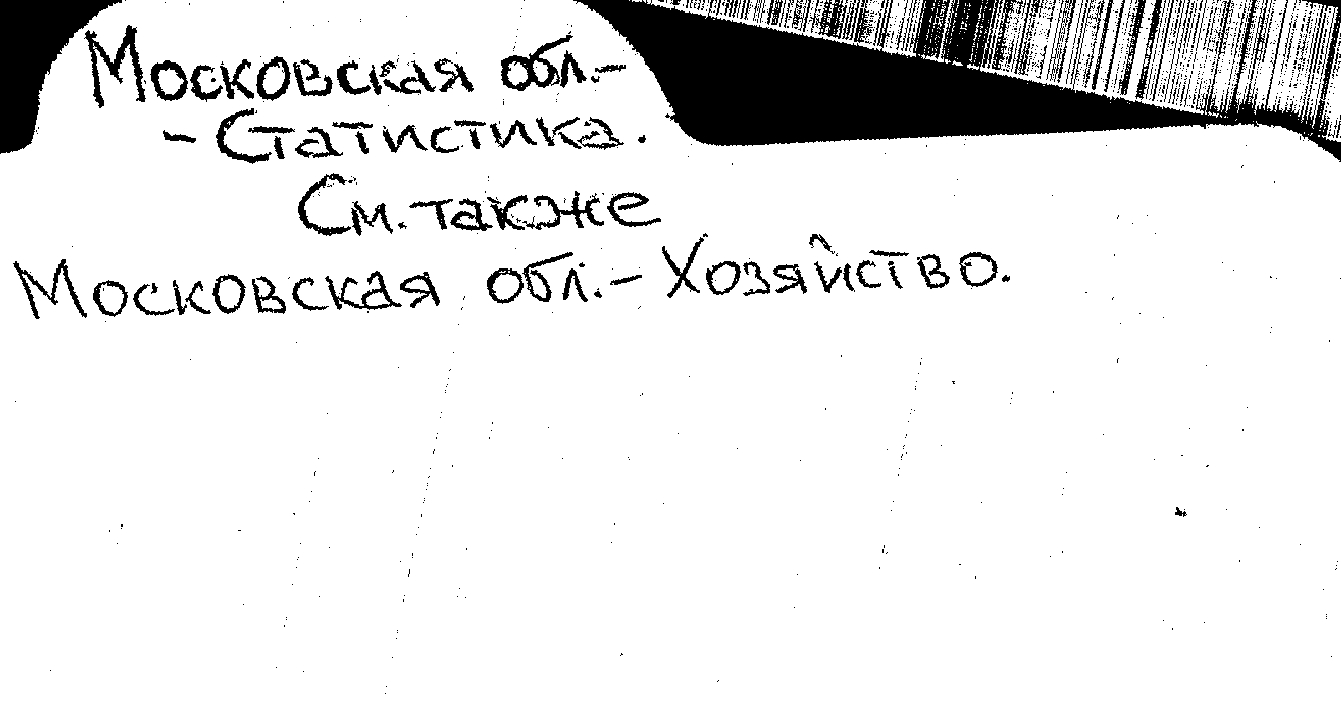 Московская обл.-
- Статистика.
См. также
Московская обл. - Хозяйство.